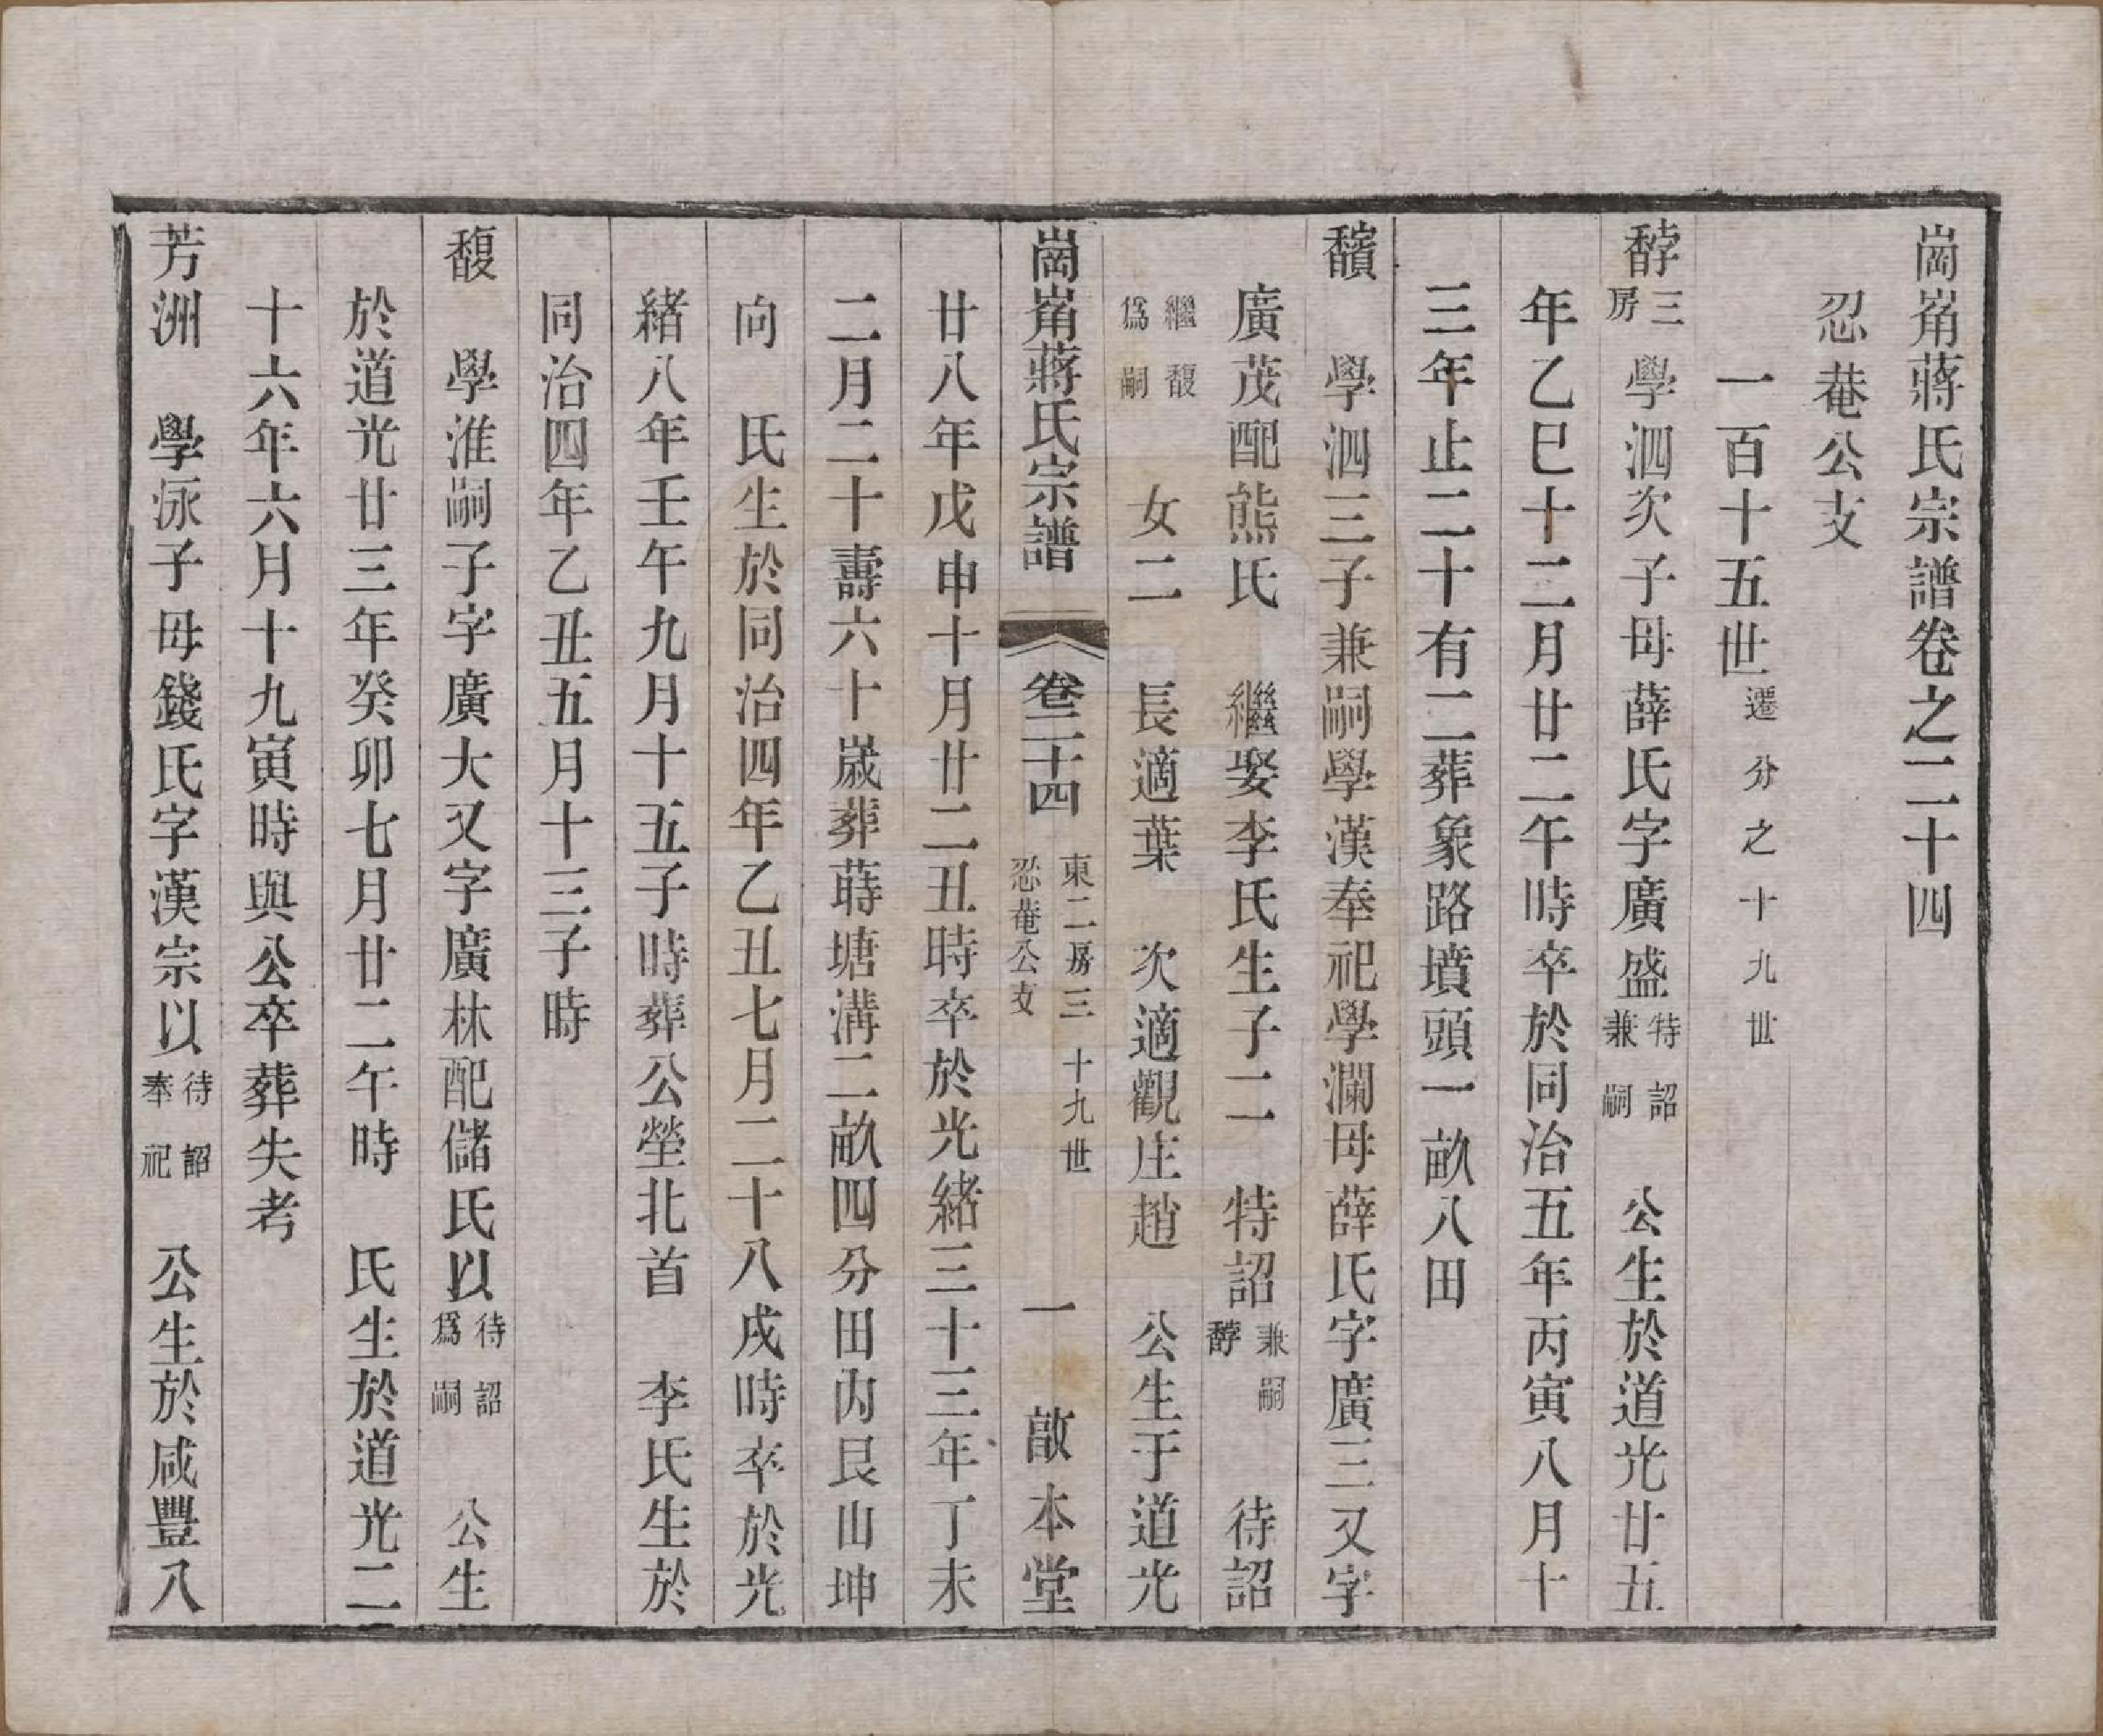 崗崙蔣氏宗譜卷之二十四
忍菴公支
一百十五世遷分之十九世
馞三房學泗次子母薛氏字廣盛特詔兼嗣 公生於道光廿五
年乙巳十二月廿二午時卒於同治五年丙寅八月十
三年止二十有二葬象路墳頭一畝八田
馩 學泗三子兼嗣學漢奉祀學瀾母薛氏字廣三又字
廣茂配熊氏 繼娶李氏生子二 特詔兼嗣馞 待詔
繼馥爲嗣 女二 長適葉 次適觀庄趙 公生于道光
崗崙蔣氏宗譜 卷二十四 東二房三十九世忍菴公支 一 啟本堂
廿八年戊申十月廿二丑時卒於光緒三十三年丁未
二月二十壽六十歲葬蒔塘溝二畝四分田內艮山坤
向 氏生於同治四年乙丑七月二十八戌時卒於光
緒八年壬午九月十五子時葬公塋北首 李氏生於
同治四年乙丑五月十三子時
馥 學淮嗣子字廣大又字廣林配儲氏以待詔爲嗣 公生
於道光廿三年癸卯七月廿二午時 氏生於道光二
十六年六月十九寅時與公卒葬失考
芳洲 學泳子母錢氏字漢宗以待詔奉祀 公生於咸豐八